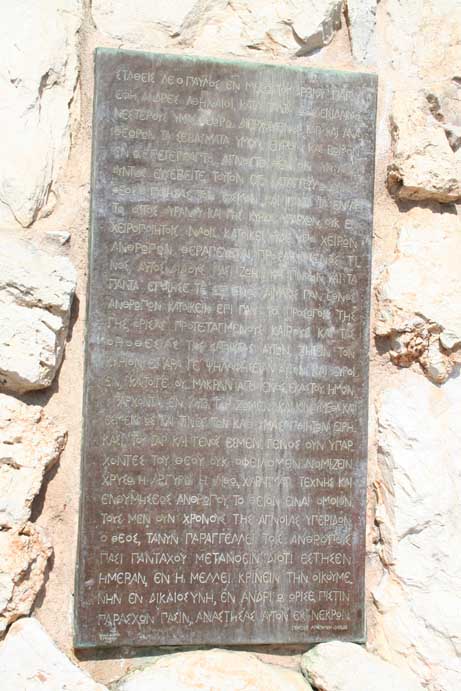 ΣΤΑΘΕΙΣ ΔΕ Ο ΠΑΥΛΟΣ ΕΝ ΜΕΣΩ ΤΟΥ ΑΡΕΙΟΥ ΠΑΓΟΥ
ΕΦΗ ΑΝΔΡΕΣ ΑΘΗΝΑΙΟΙ, ΚΑΤΑ ΠΑΝΤΑ ΩΣ ΔΕΙΣΙΔΑΙΜΟ
ΝΕΣΤΕΡΟΥΣ ΥΜΑΣ ΘΕΩΡΩ. ΔΙΕΡΧΟΜΕΝΟΣ ΓΑΡ ΚΑΙ ΑΝΑ
ΘΕΩΡΩΝ ΤΑ ΣΕΒΑΣΜΑΤΑ ΥΜΩΝ ΕΥΡΟΝ ΚΑΙ ΒΩΜΟΝ
ΕΝ Ω ΕΠΕΓΕΓΡΑΠΤΟ, ΑΓΝΩΣΤΩ ΘΕΩ. ΟΝ ΟΥΝ ΑΓΝΟ
ΟΥΝΤΕΣ ΕΥΣΕΒΕΙΤΕ ΤΟΥΤΟΝ ΕΓΩ ΚΑΤΑΓΓΕΛΛΩ ΥΜΙΝ. Ο
ΘΕΟΣ Ο ΠΟΙΗΣΑΣ ΤΟΝ ΚΟΣΜΟΝ ΚΑΙ ΠΑΝΤΑ ΤΑ ΕΝ ΑΥ
ΤΩ ΟΥΤΟΣ ΟΥΡΑΝΟΥ ΚΑΙ ΓΗΣ ΚΥΡΙΟΣ ΥΠΑΡΧΩΝ, ΟΥΚ ΕΝ
ΧΕΙΡΟΠΟΙΗΤΟΙΣ ΝΑΟΙΣ ΚΑΤΟΙΚΕΙ ΟΥΔΕ ΥΠΟ ΧΕΙΡΩΝ
ΑΝΘΡΩΠΩΝ ΘΕΡΑΠΕΥΕΤΑΙ ΠΡΟΣΔΕΟΜΕΝΟΣ ΤΙ
ΝΟΣ, ΑΥΤΟΣ ΔΙΔΟΥΣ ΠΑΣΙ ΖΩΗΝ ΚΑΙ ΠΝΟΗΝ ΚΑΙ ΤΑ
ΠΑΝΤΑ ΕΠΟΙΗΣΕ ΤΕ ΕΞ ΕΝΟΣ ΑΙΜΑΤΟΣ ΠΑΝ ΕΘΝΟΣ
ΑΝΘΡΩΠΩΝ ΚΑΤΟΙΚΕΙΝ ΕΠΙ ΠΑΝ ΤΟ ΠΡΟΣΩΠΟΝ ΤΗΣ
ΓΗΣ, ΟΡΙΣΑΣ ΠΡΟΤΕΤΑΓΜΕΝΟΥΣ ΚΑΙΡΟΥΣ ΚΑΙ ΤΑΣ
ΟΡΟΘΕΣΙΑΣ ΤΗΣ ΚΑΤΟΙΚΙΑΣ ΑΥΤΩΝ, ΖΗΤΕΙΝ ΤΟΝ
ΚΥΡΙΟΝ ΕΙ ΑΡΑ ΓΕ ΨΗΛΑΦΗΣΕΙΑΝ ΑΥΤΟΝ ΚΑΙ ΕΥΡΟΙ
ΕΝ, ΚΑΙΤΟΙΓΕ ΟΥ ΜΑΚΡΑΝ ΑΠΟ ΕΝΟΣ ΕΚΑΣΤΟΥ ΗΜΩΝ
ΥΠΑΡΧΟΝΤΑ. ΕΝ ΑΥΤΩ ΓΑΡ ΖΩΜΕΝ ΚΑΙ ΚΙΝΟΥΜΕΘΑ ΚΑΙ
ΕΣΜΕΝ, ΩΣ ΚΑΙ ΤΙΝΕΣ ΤΩΝ ΚΑΘ ΥΜΑΣ ΠΟΙΗΤΩΝ ΕΙΡΗ
ΚΑΣΙ ΤΟΥ ΓΑΡ ΚΑΙ ΓΕΝΟΣ ΕΣΜΕΝ. ΓΕΝΟΣ ΟΥΝ ΥΠΑΡ
ΧΟΝΤΕΣ ΤΟΥ ΘΕΟΥ ΟΥΚ ΟΦΕΙΛΟΜΕΝ ΝΟΜΙΖΕΙΝ
ΧΡΥΣΩ Η ΑΡΓΥΡΩ Η ΛΙΘΩ, ΧΑΡΑΓΜΑΤΙ ΤΕΧΝΗΣ ΚΑΙ
ΕΝΘΥΜΗΣΕΩΣ ΑΝΘΡΩΠΟΥ, ΤΟ ΘΕΙΟΝ ΕΙΝΑΙ ΟΜΟΙΟΝ.
ΤΟΥΣ ΜΕΝ ΟΥΝ ΧΡΟΝΟΥΣ ΤΗΣ ΑΓΝΟΙΑΣ ΥΠΕΡΙΔΩΝ
Ο ΘΕΟΣ, ΤΑΝΥΝ ΠΑΡΑΓΓΕΛΛΕΙ ΤΟΙΣ ΑΝΘΡΩΠΟΙΣ
ΠΑΣΙ ΠΑΝΤΑΧΟΥ ΜΕΤΑΝΟΕΙΝ ΔΙΟΤΙ ΕΣΤΗΣΕΝ
ΗΜΕΡΑΝ, ΕΝ Η ΜΕΛΛΕΙ ΚΡΙΝΕΙΝ ΤΗΝ ΟΙΚΟΥΜΕ
ΝΗΝ ΕΝ ΔΙΚΑΙΟΣΥΝΗ, ΕΝ ΑΝΔΡΙ Ω ΩΡΙΣΕ, ΠΙΣΤΙΝ
ΠΑΡΑΣΧΩΝ ΠΑΣΙΝ, ΑΝΑΣΤΗΣΑΣ ΑΥΤΟΝ ΕΚ ΝΕΚΡΩΝ